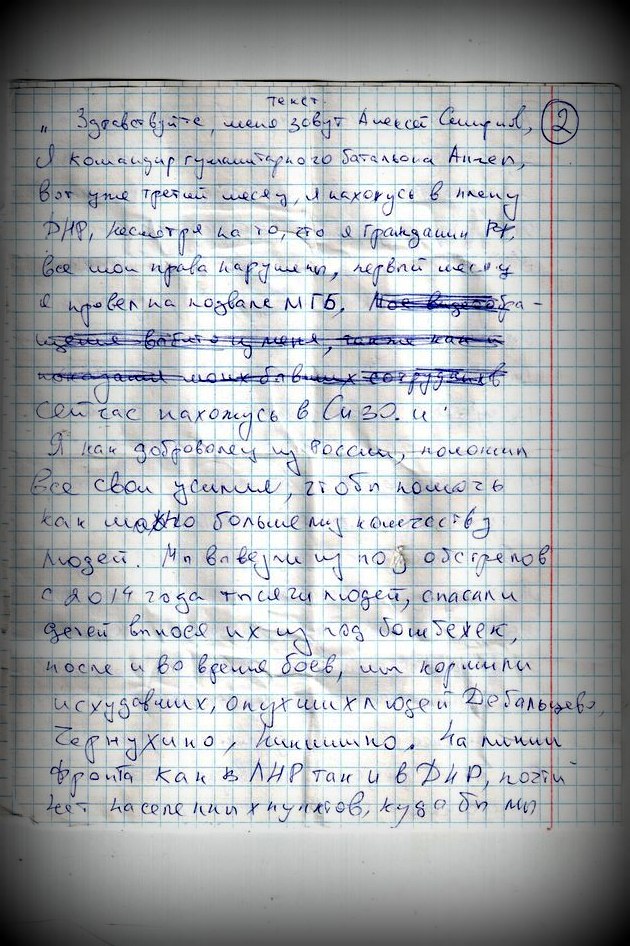 текст.
„ Здравствуйте, меня зовут Алексей Смирнов, 2
Я командир гуманитарного батальона Ангел,
вот уже третий месяц, я нахожусь в плену
ДНР, несмотря на то, что я гражданин РФ.
все мои права нарушены, первый месяц
я провел на подвале МГБ, Мое видеообра-
щение выбито из меня, также как и
показания моих бывших сотрудников
сейчас нахожусь в СиЗО. и
Я как доброволец из России, положил
все свои усилия, чтобы помочь
как можно большему количеству
людей. Мы вывезли из под обстрелов
с 2014 года тысячи людей, спасали
детей вынося их из под бомбежек,
после и во время боев, мы кормили
исхудавших, опухших людей Дебальцево,
Чернухино, Никишино. На линии
фронта как в ЛНР так и в ДНР, почти
нет населенных пунктов, куда бы мы